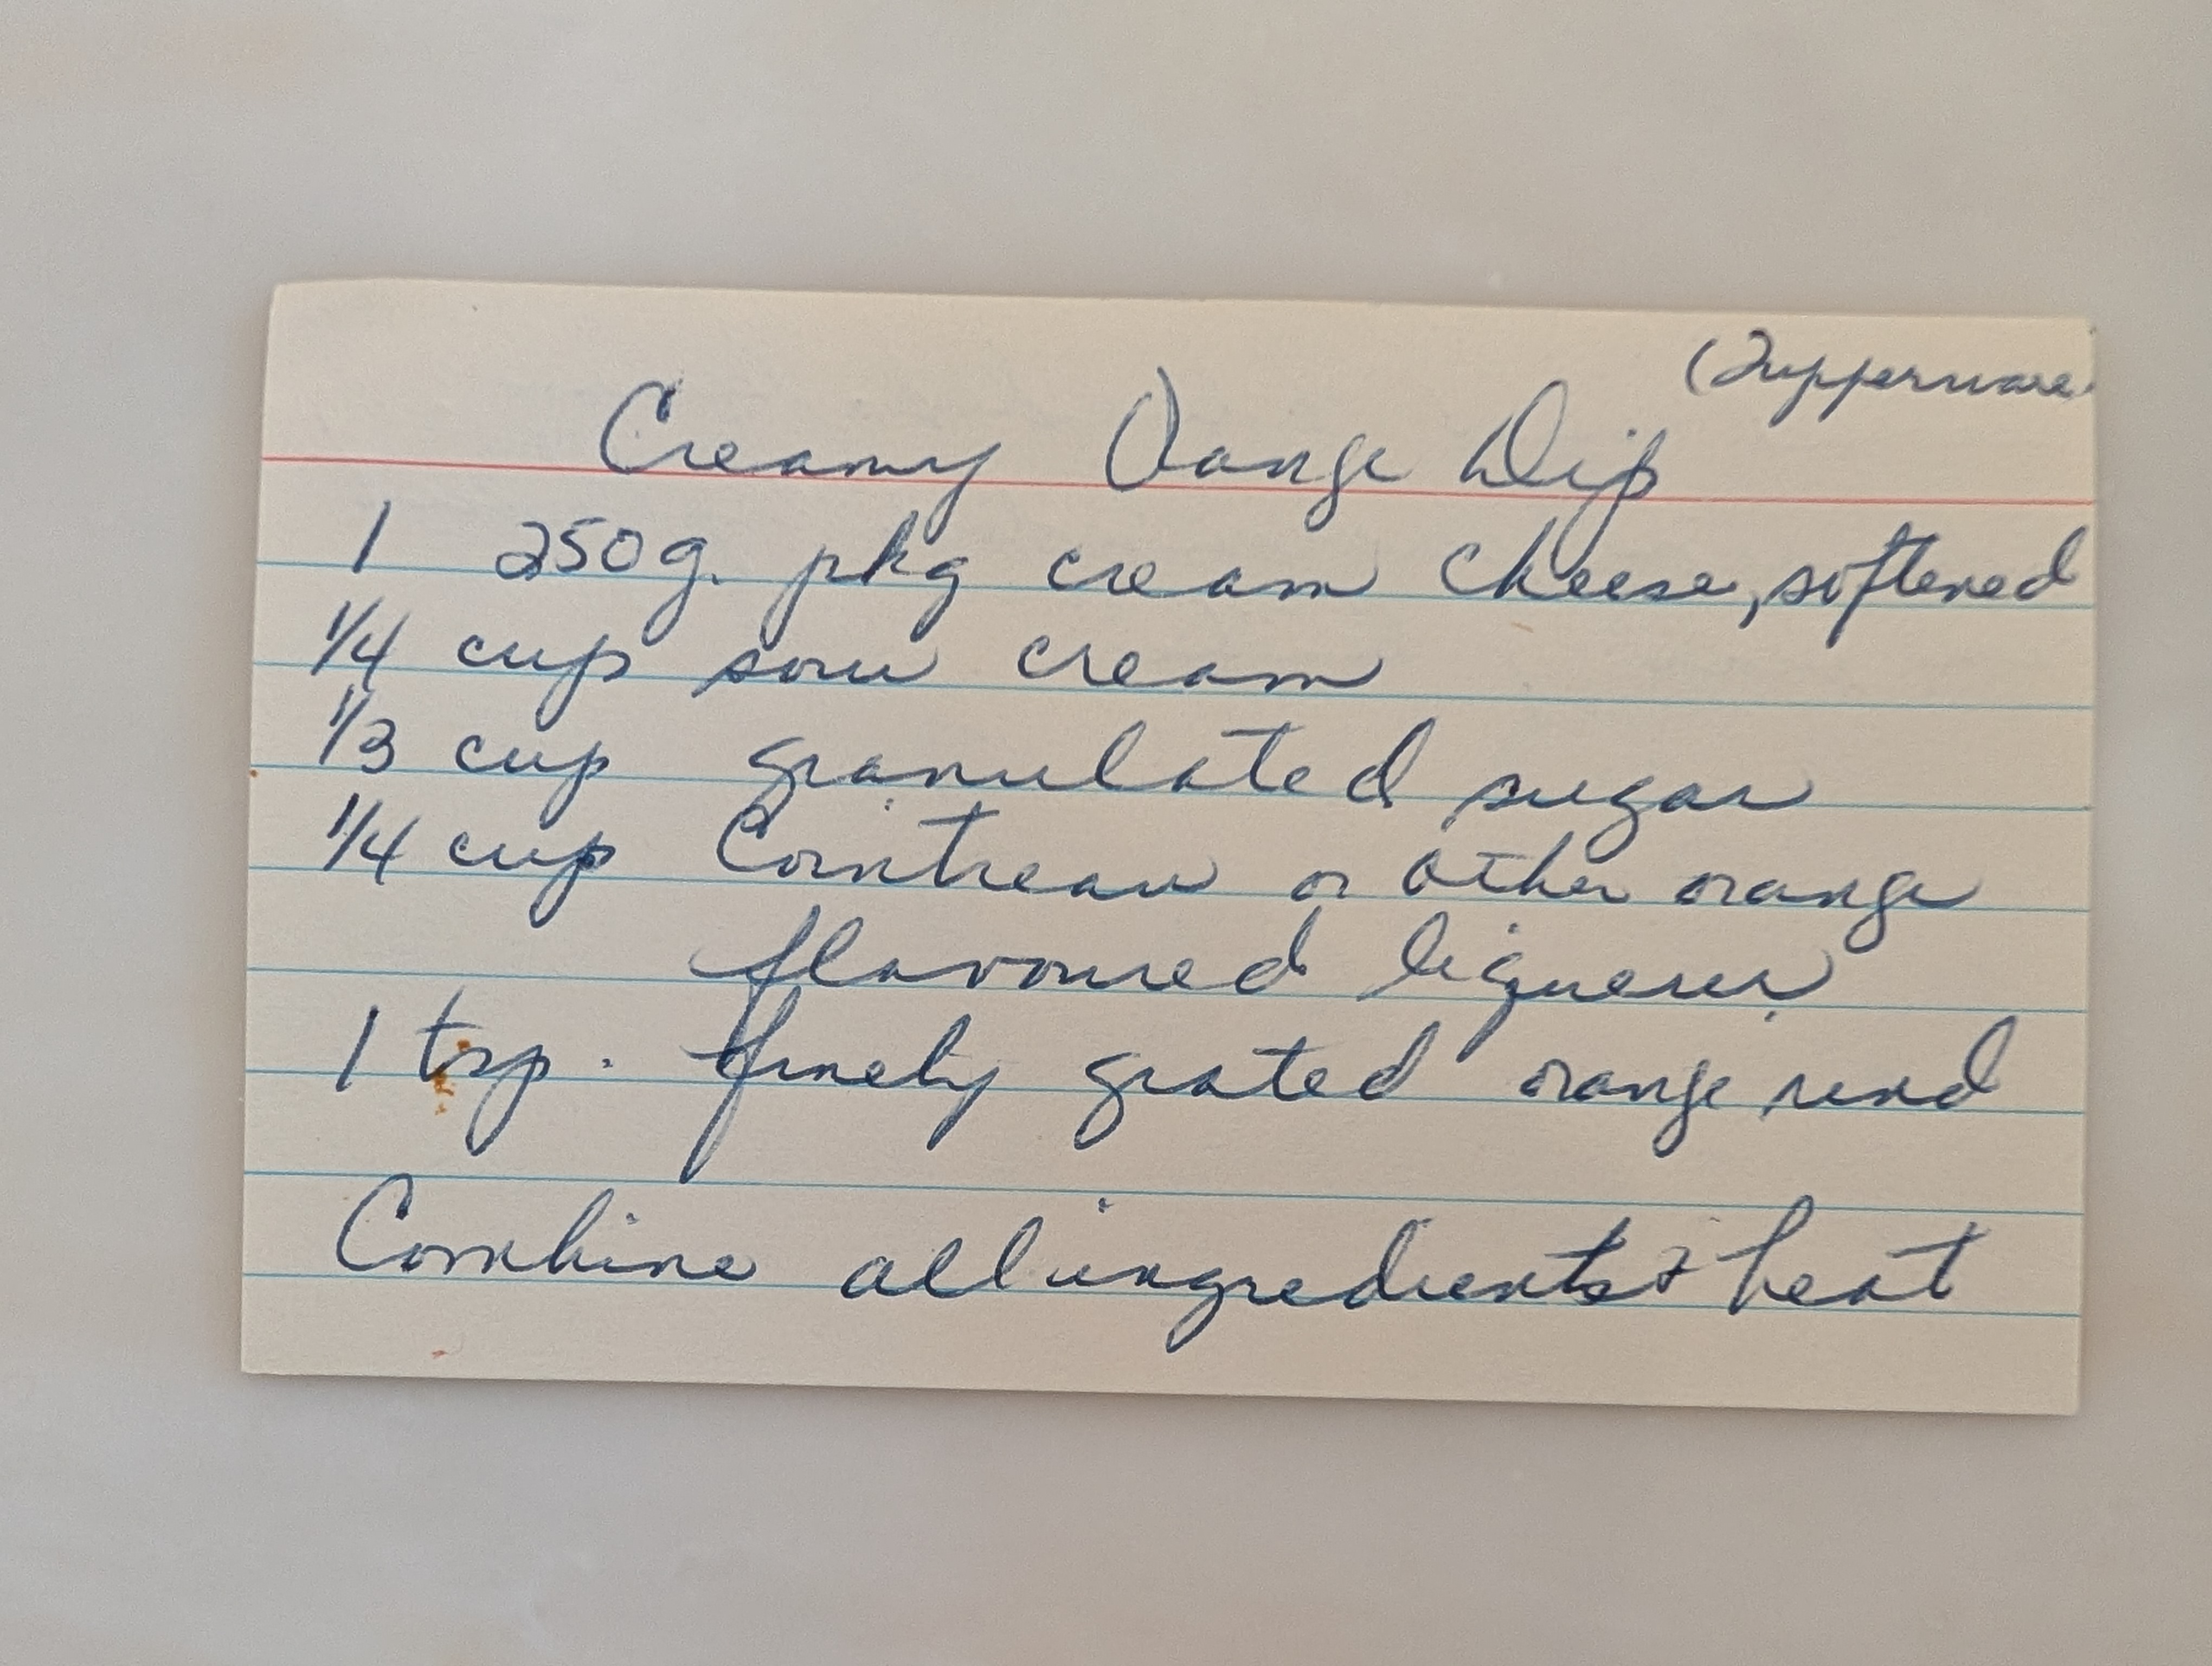 (Tupperware
Creamy Oange Dip
1 250g. pkg cream cheese, softened
1/4 cup sour cream
1/3 cup granulated sugar
1/4 cup Cointreau or other orange
flavoured liqueur
1 tsp. finely grated orange rind
Combine all ingredients & heat